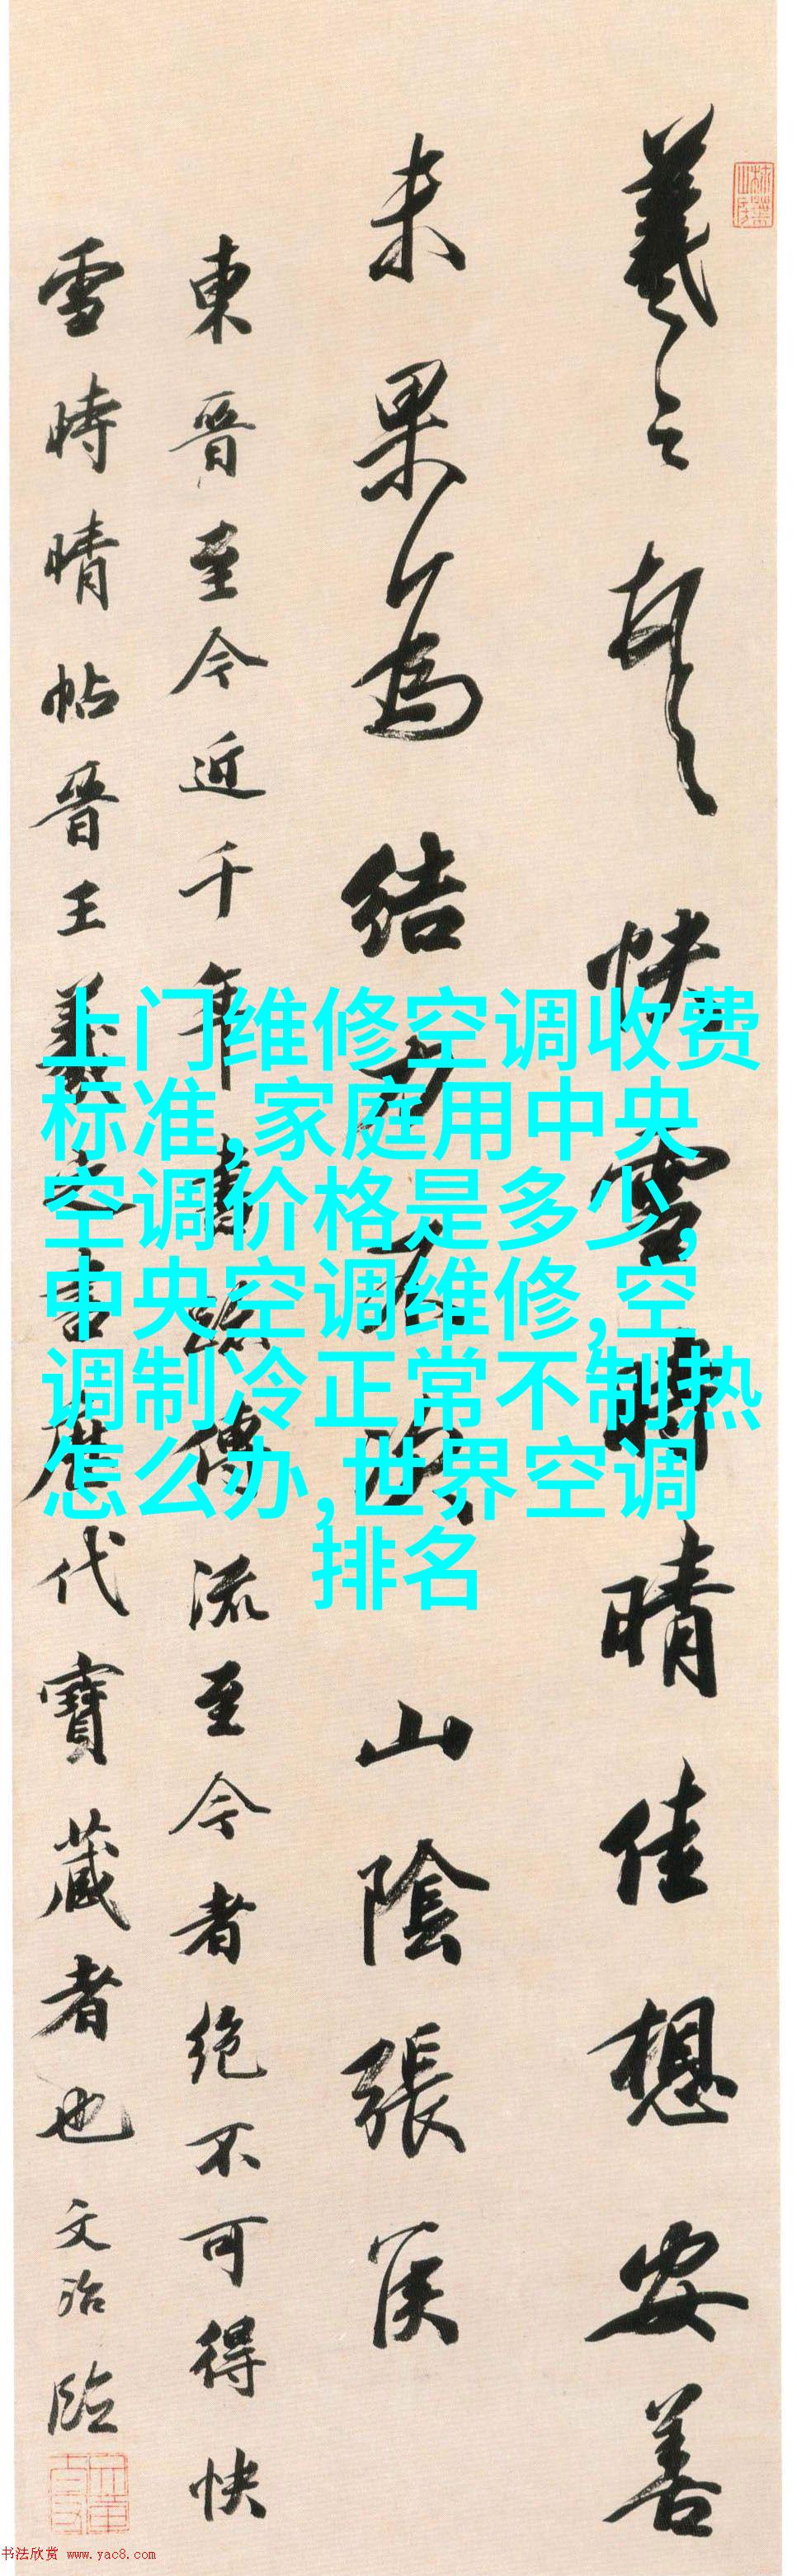 羲之頓首快雪時晴佳想安善
未果為結力不次山陰張侯
東晋至今近千年書跡傳流至今者绝不可得快
雪時晴帖晋王羲之書歷代寶藏者也文治臨
上门维修空调收费
标准,家庭用中央
空调价格是多少,
中央空调维修,空
调制冷正常不制热
怎么办,世界空调
排名
书法欣赏 www.yac8.com